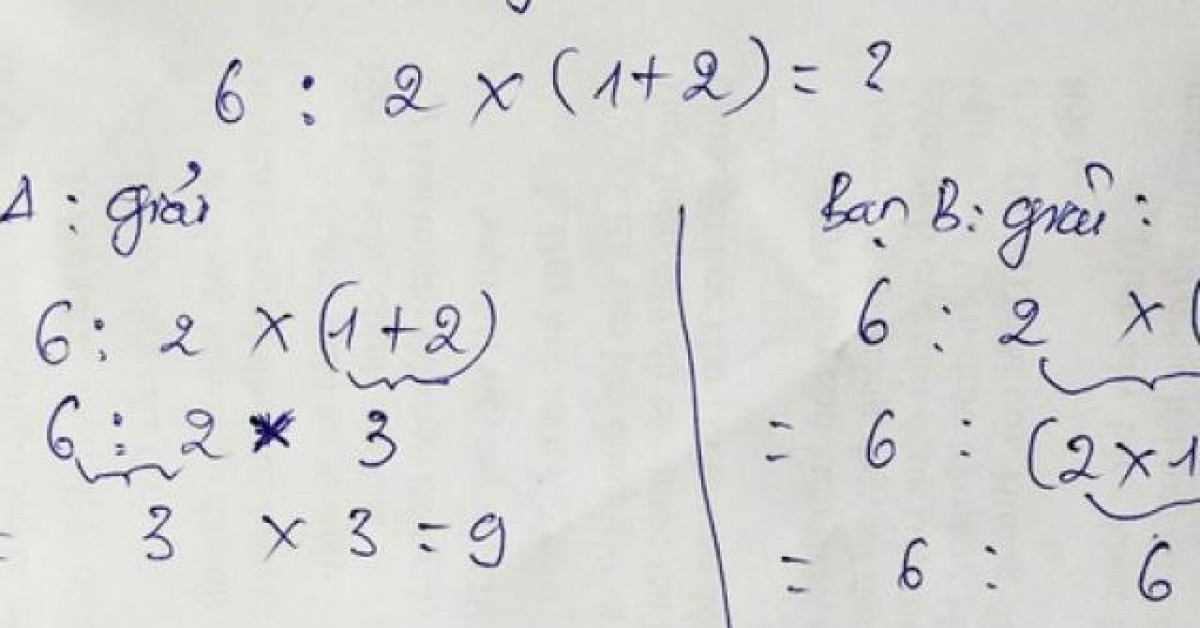 6 : 2 × (1+2) = ?
A : giải
6 : 2 × (1+2)
6 : 2 × 3
= 3 × 3 = 9
Bạn B : giải :
6 : 2 × (
= 6 : (2×1
= 6 : 6